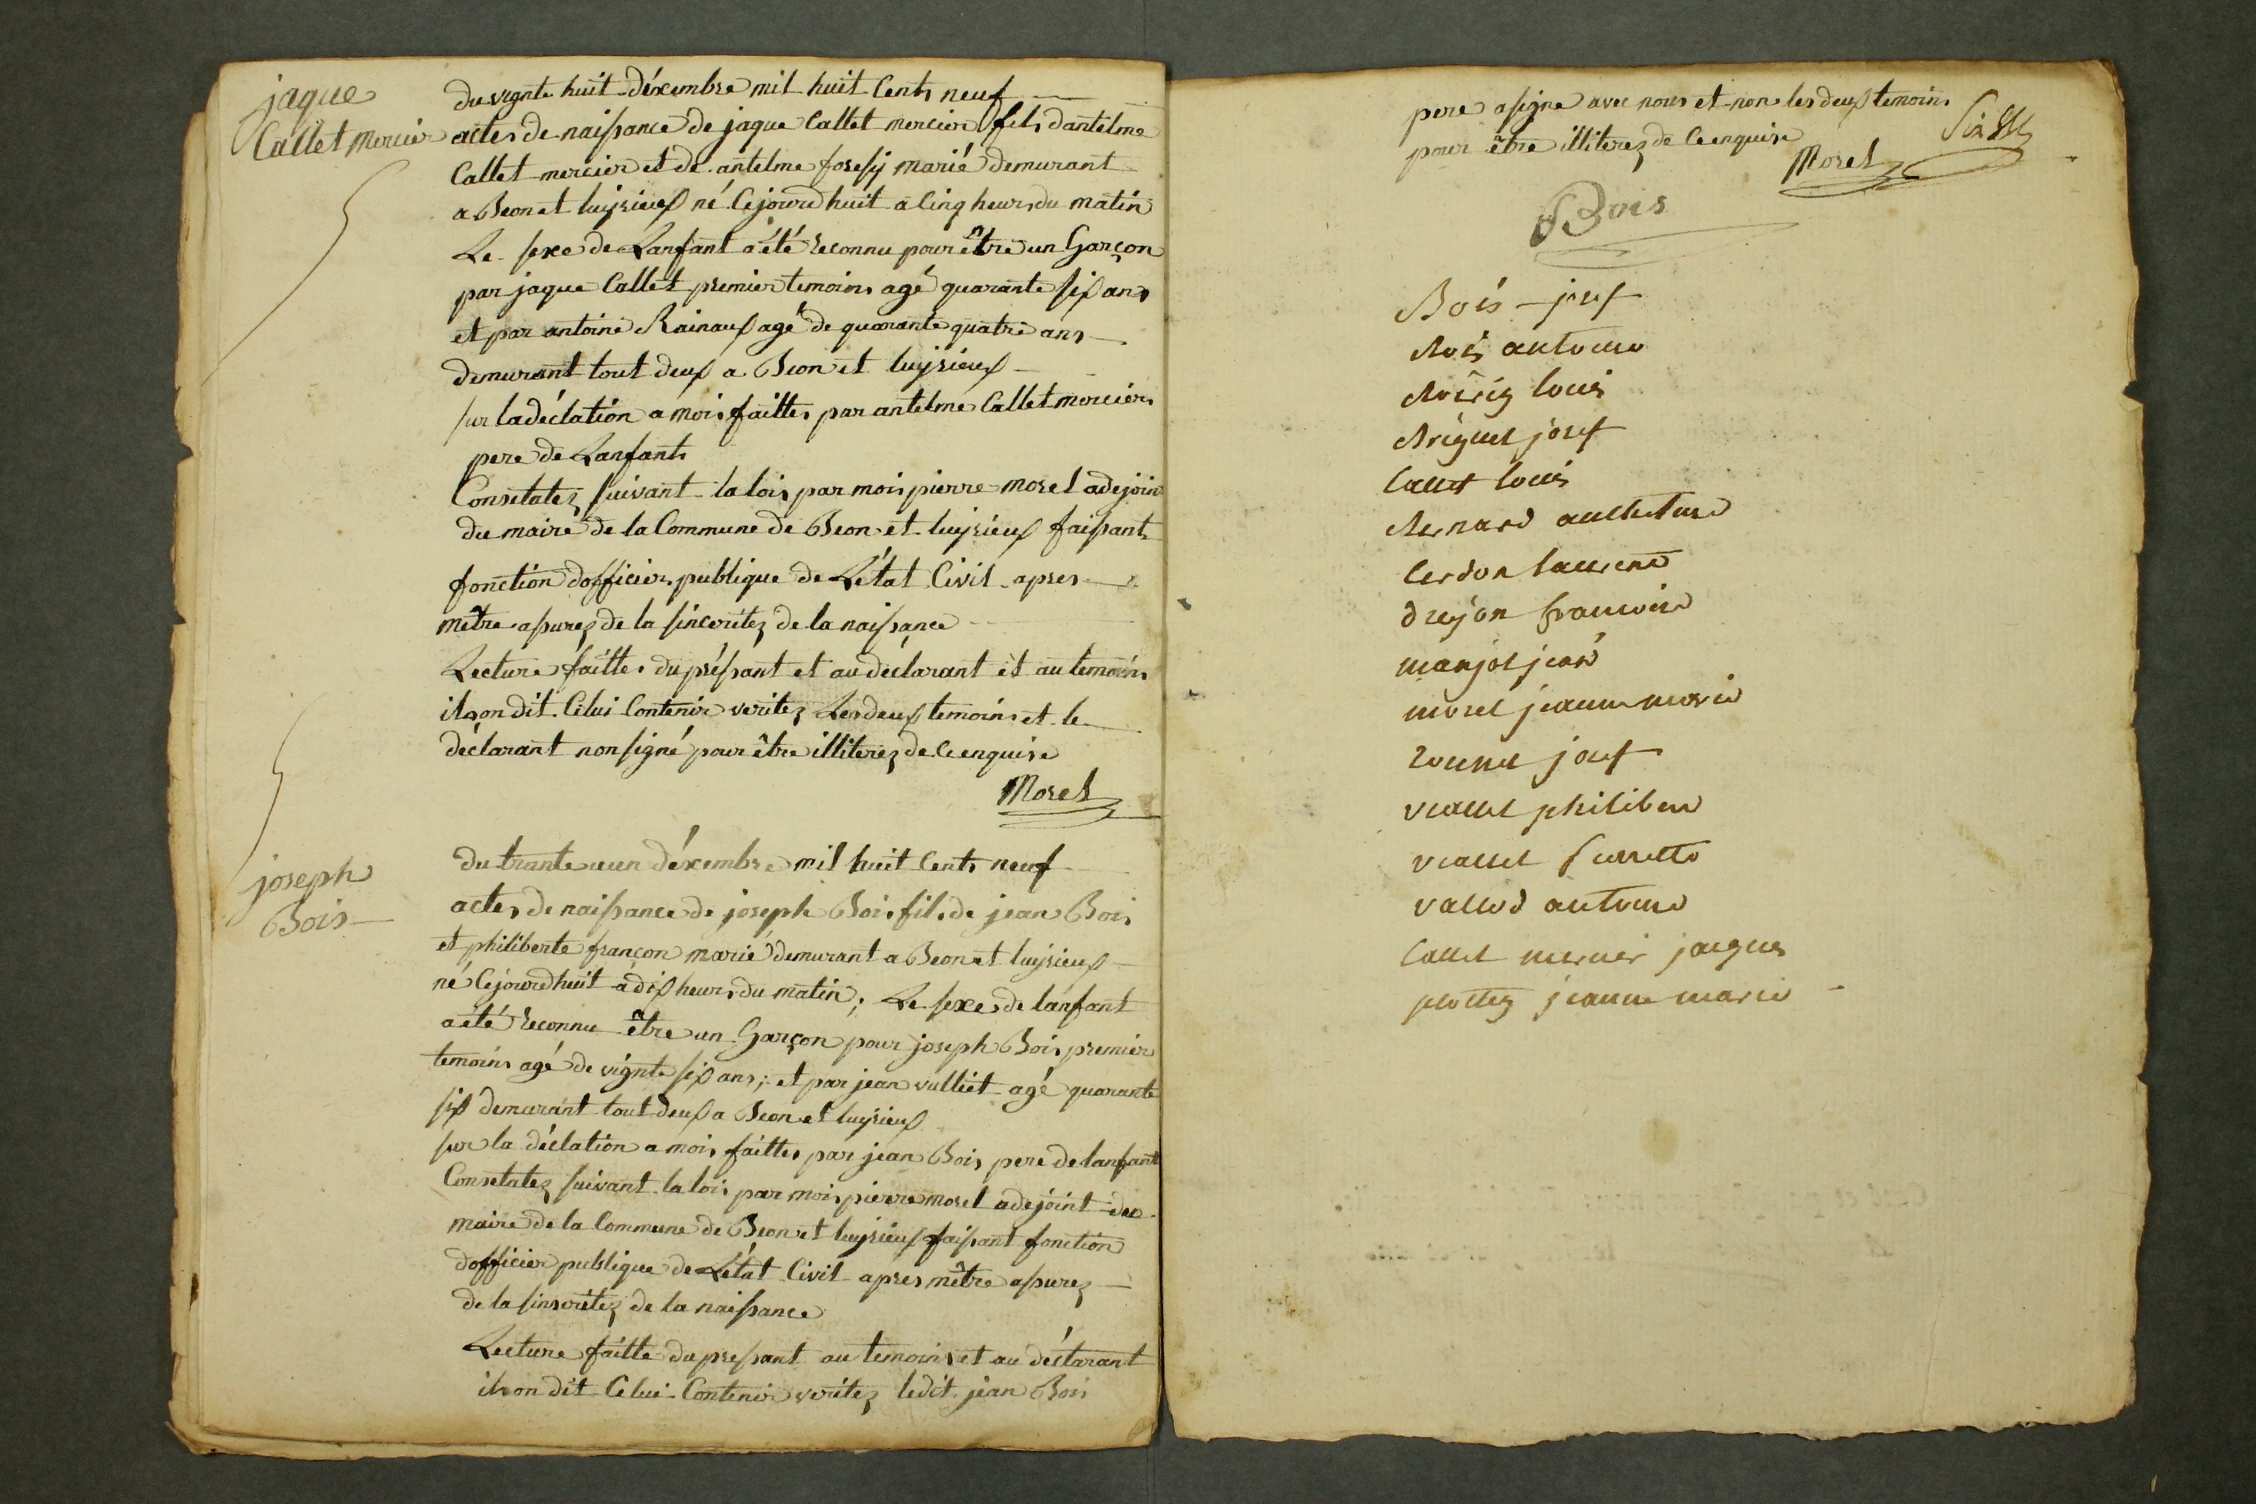 jaque
Callet mercier
du vignte huit déxembre mil huit Cents neuf
actes de naissance de jaque Callet mercier fils dantelme
Callet mercier et de antelme marié demurant
a Beon et luyrieux né Cejourdhuit a Cinq heurs du matin
Le sexe de Lanfant a été reconnu pour être un Garçon
par jaque Callet premier temoins agé quarante six ans
et par antoine Rainaux agé de quarante quatre ans
demurant tout deux a Beon et luyrieux
sur ladéclation a mois faittes par antelme Callet mercier
pere de Lanfants
Consetatez suivant la lois par mois pierre morel adejoin
du maire de la Commune de Beon et luyrieux faisant
fonction dofficier publique de Létat Civil apres
mêtre asurez de la sinceritez de la naissance
Lecture faittes du présant et au déclarant et au temoins
ils on dit Celui Contenir veritez Les deux temoins et le
déclarant non signé pour être illiterez de Ce enquise
Morel
joseph
Bois
du trante eun déxembre mil huit Cents neuf
actes de naissance de joseph Bois fils de jean Bois
et philiberte françon marié demurant a Beon et luyrieux
né Cejourdhuit a dix heurs du matin; Le sexe de lanfant
a été reconnu être un Garçon pour joseph Bois premier
temoins agé de vignte six ans; et par jean vulliet agé quarante
six demurant tout deux a Beon et luyrieux
sur la déclation a mois faittes par jean Bois pere de lanfant
Consetatez suivant la lois par mois pierre morel adejoint du
maire de la Commune de Beon et luyrieux faisant fonction
dofficier publique de Létat Civil apres mêtre asurez
de la sinseritez de la naissance
Lecture faitte du presant au temoins et au déclarant
ils on dit Celui Contenir veritez ledit jean Bois
pere a signe avec nous et non les deux temoins
pour être illiterez de Ce enquise
Morel
Bois
Bois josef
Bois antoine
louis
Briguet josef
Callet louis
Bernard
Cerdon laurend
dreyon francoise
marjot jean
morel jeanne marie
josef
viallet philibert
viallet
vallod antoine
Callet mercier jacques
jeanne marie